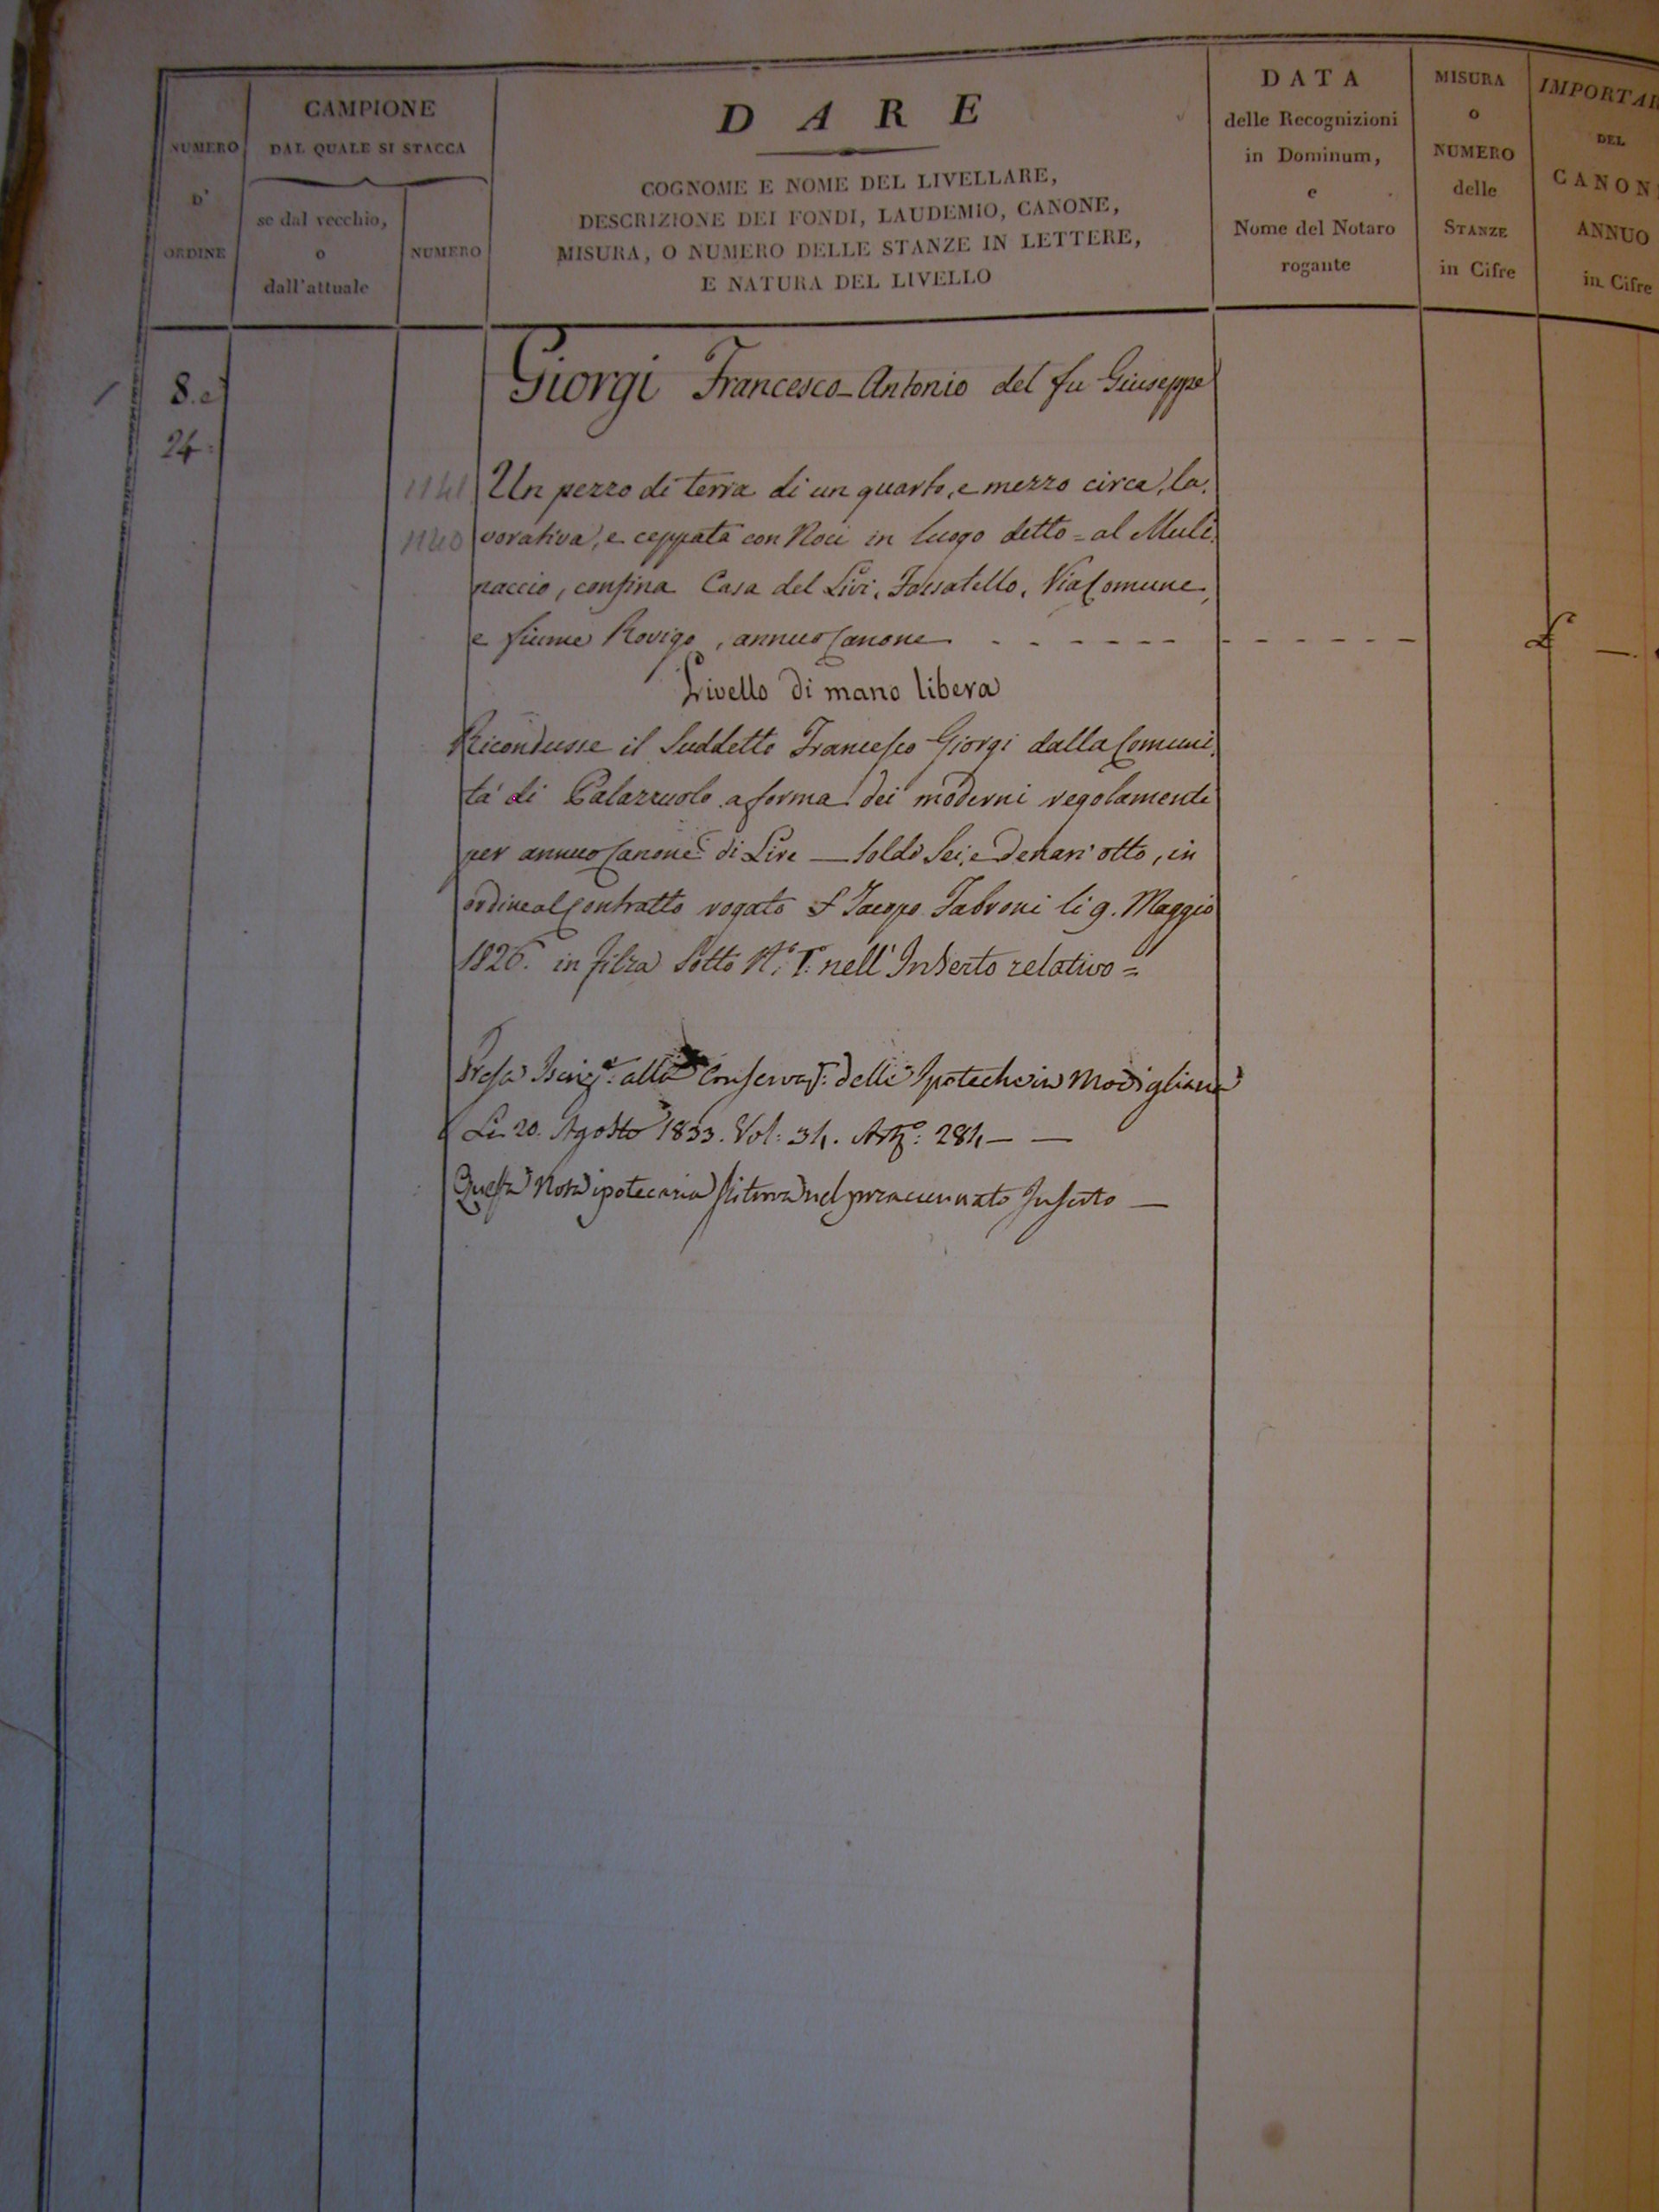 NUMERO
D'
ORDINE
CAMPIONE
DAL QUALE SI STACCA
se dal vecchio,
o
dall'attuale
NUMERO
D A R E
COGNOME E NOME DEL LIVELLARE,
DESCRIZIONE DEI FONDI, LAUDEMIO, CANONE,
MISURA, O NUMERO DELLE STANZE IN LETTERE,
E NATURA DEL LIVELLO
DATA
delle Recognizioni
in Dominum,
e
Nome del Notaro
rogante
MISURA
o
NUMERO
delle
STANZE
in Cifre
IMPORTAR
DEL
CANON
ANNUO
in Cifre
8. e
24:
Giorgi Francesco-Antonio del fu Giuseppe
1141
1140
Un pezzo di terra di un quarto, e mezzo circa, la,
vorativa, e ceppata con Noci in luogo detto = al Muli,
naccio, confina Casa del Livi, Fossatello, Via Comune,
e fiume Rovigo, annuo Canone - - - - - - - - - - - - £ —
Livello di mano libera
Ricondusse il Suddetto Francesco Giorgi dalla Comuni,
tà di Palazzuolo a forma dei moderni regolamenti
per annuo Canone di Lire — Soldi Sei, e Denari otto, in
ordine al Contratto rogato Jacopo Fabroni li 9. Maggio
1826. in filza Sotto N.° nell' Inserto relativo =
Presa Iscriz.e: alla Conservaz: delle Ipoteche in Modigliana
Li 20. Agosto 1833. Vol: 34. Art.°: 284 — —
Questa Nota ipotecaria si ritrova nel preaccennato Inserto —